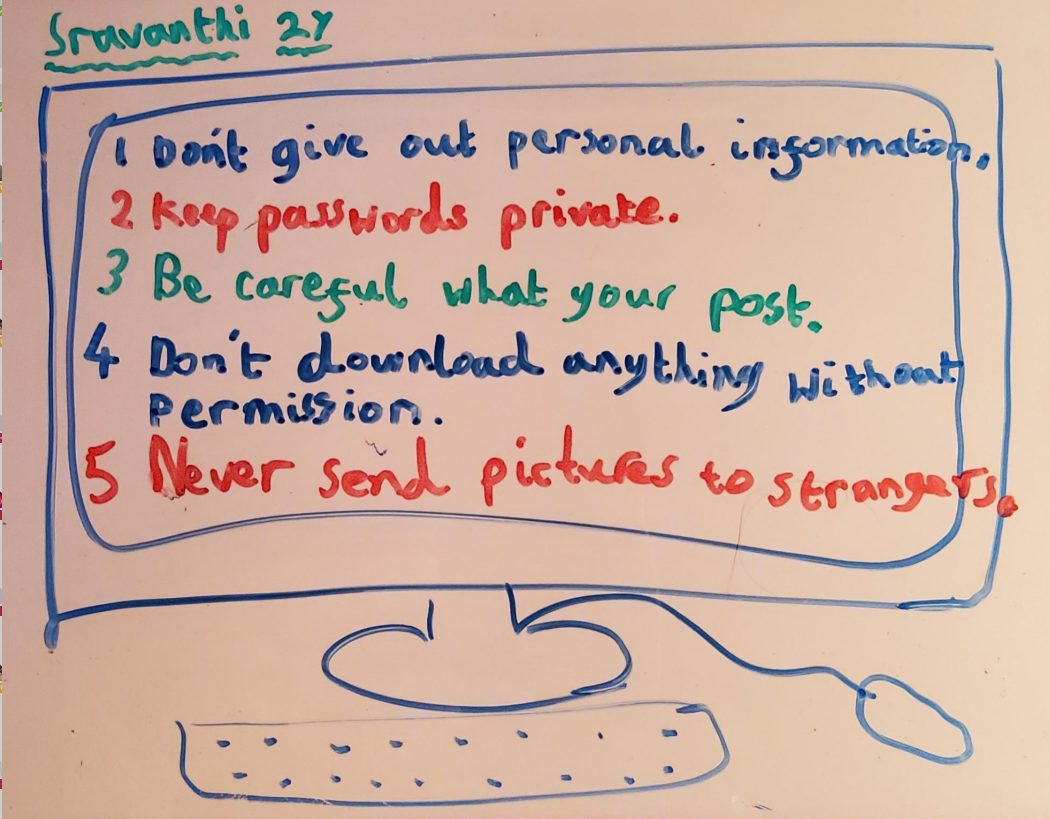 Sravanthi 2Y
1 Don't give out personal information.
2 Keep passwords private.
3 Be careful what your post.
4 Don't download anything without
permission.
5 Never send pictures to strangers.